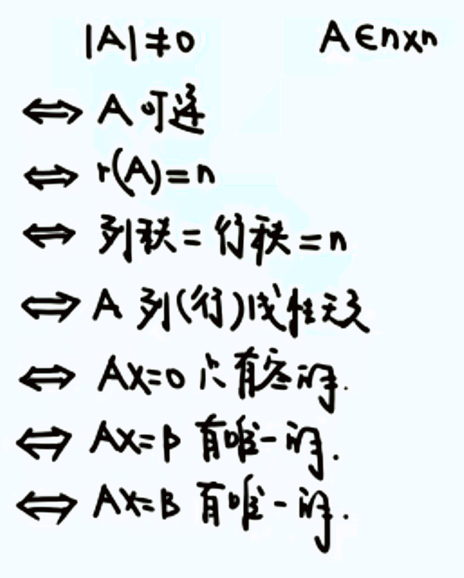 |A|≠0 A∈n×n
⇔ A可逆
⇔ r(A)=n
⇔ 列秩=行秩=n
⇔ A 列(行)线性无关
⇔ AX=0 只有零解.
⇔ AX=β 有唯一解.
⇔ AX=B 有唯一解.